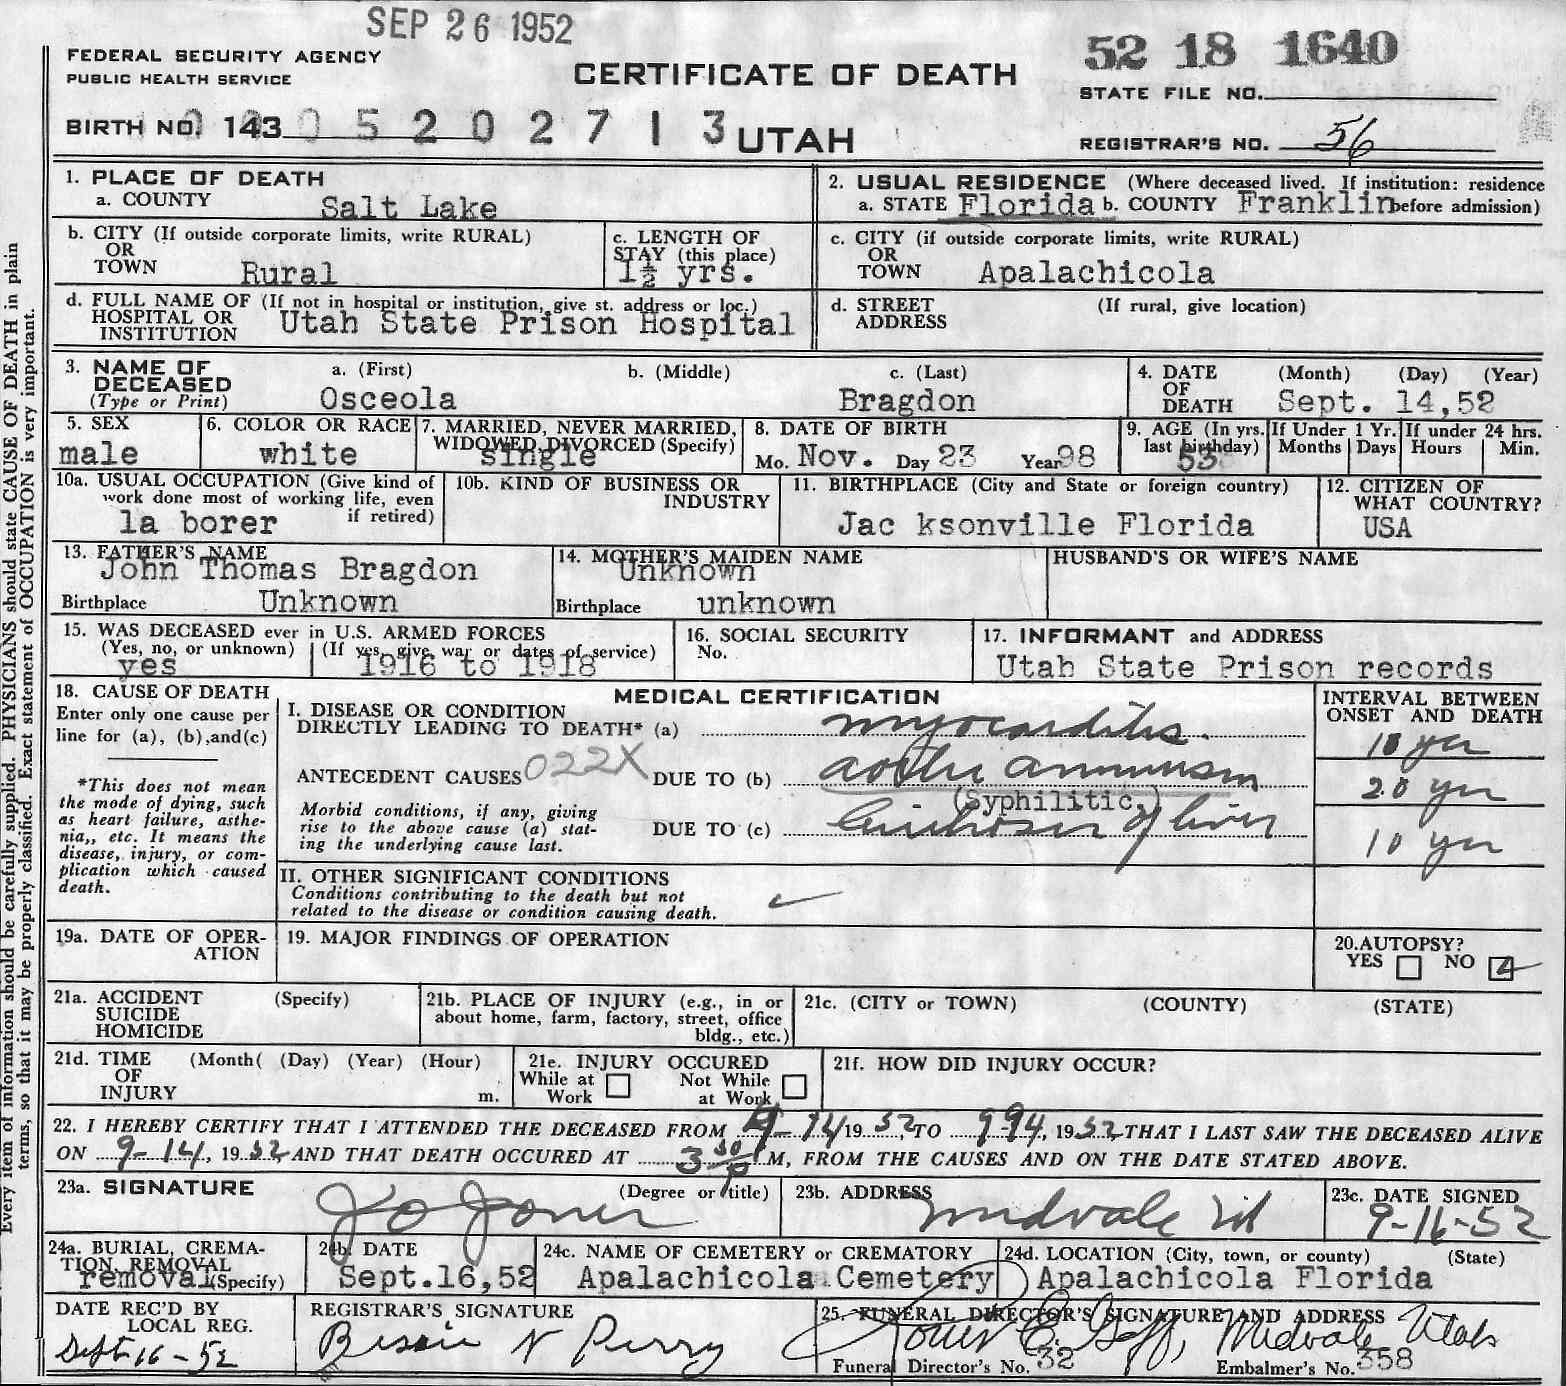 SEP 26 1952
FEDERAL SECURITY AGENCY
PUBLIC HEALTH SERVICE
CERTIFICATE OF DEATH
52 18 1640
STATE FILE NO.
BIRTH NO. 143 0 5 2 0 2 7 1 3
UTAH
REGISTRAR'S NO. 56
1. PLACE OF DEATH
a. COUNTY Salt Lake
2. USUAL RESIDENCE (Where deceased lived. If institution: residence before admission)
a. STATE Florida b. COUNTY Franklin
b. CITY (If outside corporate limits, write RURAL)
OR
TOWN Rural
c. LENGTH OF
STAY (this place)
1½ yrs.
c. CITY (if outside corporate limits, write RURAL)
OR
TOWN Apalachicola
d. FULL NAME OF (If not in hospital or institution, give st. address or loc.)
HOSPITAL OR
INSTITUTION Utah State Prison Hospital
d. STREET (If rural, give location)
ADDRESS
3. NAME OF
DECEASED
(Type or Print)
a. (First) b. (Middle) c. (Last)
Osceola Bragdon
4. DATE (Month) (Day) (Year)
OF
DEATH Sept. 14,52
5. SEX
male
6. COLOR OR RACE
white
7. MARRIED, NEVER MARRIED,
WIDOWED, DIVORCED (Specify)
single
8. DATE OF BIRTH
Mo. Nov. Day 23 Year 98
9. AGE (In yrs.
last birthday)
53
If Under 1 Yr.
Months Days
If under 24 hrs.
Hours Min.
10a. USUAL OCCUPATION (Give kind of
work done most of working life, even
if retired)
la borer
10b. KIND OF BUSINESS OR
INDUSTRY
11. BIRTHPLACE (City and State or foreign country)
Jac ksonville Florida
12. CITIZEN OF
WHAT COUNTRY?
USA
13. FATHER'S NAME
John Thomas Bragdon
Birthplace Unknown
14. MOTHER'S MAIDEN NAME
Unknown
Birthplace unknown
HUSBAND'S OR WIFE'S NAME
15. WAS DECEASED ever in U.S. ARMED FORCES
(Yes, no, or unknown) (If yes, give war or dates of service)
yes 1916 to 1918
16. SOCIAL SECURITY
No.
17. INFORMANT and ADDRESS
Utah State Prison records
18. CAUSE OF DEATH
Enter only one cause per
line for (a), (b),and(c)
*This does not mean
the mode of dying, such
as heart failure, asthe-
nia,, etc. It means the
disease, injury, or com-
plication which caused
death.
MEDICAL CERTIFICATION
I. DISEASE OR CONDITION
DIRECTLY LEADING TO DEATH* (a) myocarditis.
ANTECEDENT CAUSES 022X DUE TO (b)
(Syphilitic)
Morbid conditions, if any, giving
rise to the above cause (a) stat-
ing the underlying cause last.
DUE TO (c) Cirrhosis of liver
INTERVAL BETWEEN
ONSET AND DEATH
10 yrs
20 yrs
10 yrs
II. OTHER SIGNIFICANT CONDITIONS
Conditions contributing to the death but not
related to the disease or condition causing death.
19a. DATE OF OPER-
ATION
19. MAJOR FINDINGS OF OPERATION
20.AUTOPSY?
YES NO
21a. ACCIDENT (Specify)
SUICIDE
HOMICIDE
21b. PLACE OF INJURY (e.g., in or
about home, farm, factory, street, office
bldg., etc.)
21c. (CITY or TOWN) (COUNTY) (STATE)
21d. TIME (Month( (Day) (Year) (Hour)
OF
INJURY m.
21e. INJURY OCCURED
While at Work
Not While at Work
21f. HOW DID INJURY OCCUR?
22. I HEREBY CERTIFY THAT I ATTENDED THE DECEASED FROM 9-14 1952, TO 9-14, 1952 THAT I LAST SAW THE DECEASED ALIVE
ON 9-14, 1952 AND THAT DEATH OCCURED AT 3 30 P M, FROM THE CAUSES AND ON THE DATE STATED ABOVE.
23a. SIGNATURE (Degree or title)
Jones
23b. ADDRESS
Midvale Ut
23c. DATE SIGNED
9-16-52
24a. BURIAL, CREMA-
TION, REMOVAL
removal (Specify)
24b. DATE
Sept.16,52
24c. NAME OF CEMETERY or CREMATORY
Apalachicola Cemetery
24d. LOCATION (City, town, or county) (State)
Apalachicola Florida
DATE REC'D BY
LOCAL REG.
Sept 16-52
REGISTRAR'S SIGNATURE
Bessie N Perry
25. FUNERAL DIRECTOR'S SIGNATURE AND ADDRESS
Goff, Midvale Utah
Funeral Director's No. 32
Embalmer's No. 358
Every item of information should be carefully supplied. PHYSICIANS should state CAUSE OF DEATH in plain
terms, so that it may be properly classified. Exact statement of OCCUPATION is very important.